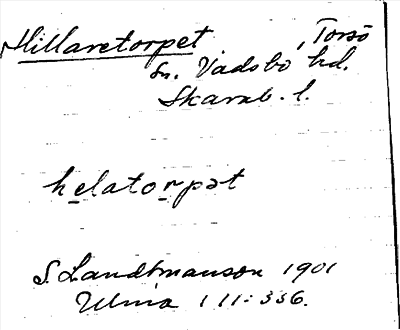 Hillaretorpet, Torsö
Sn. Vadsbo hd.
Skarab. l.
helatorpət
S. Landtmanson 1901
Ulma 111:336.